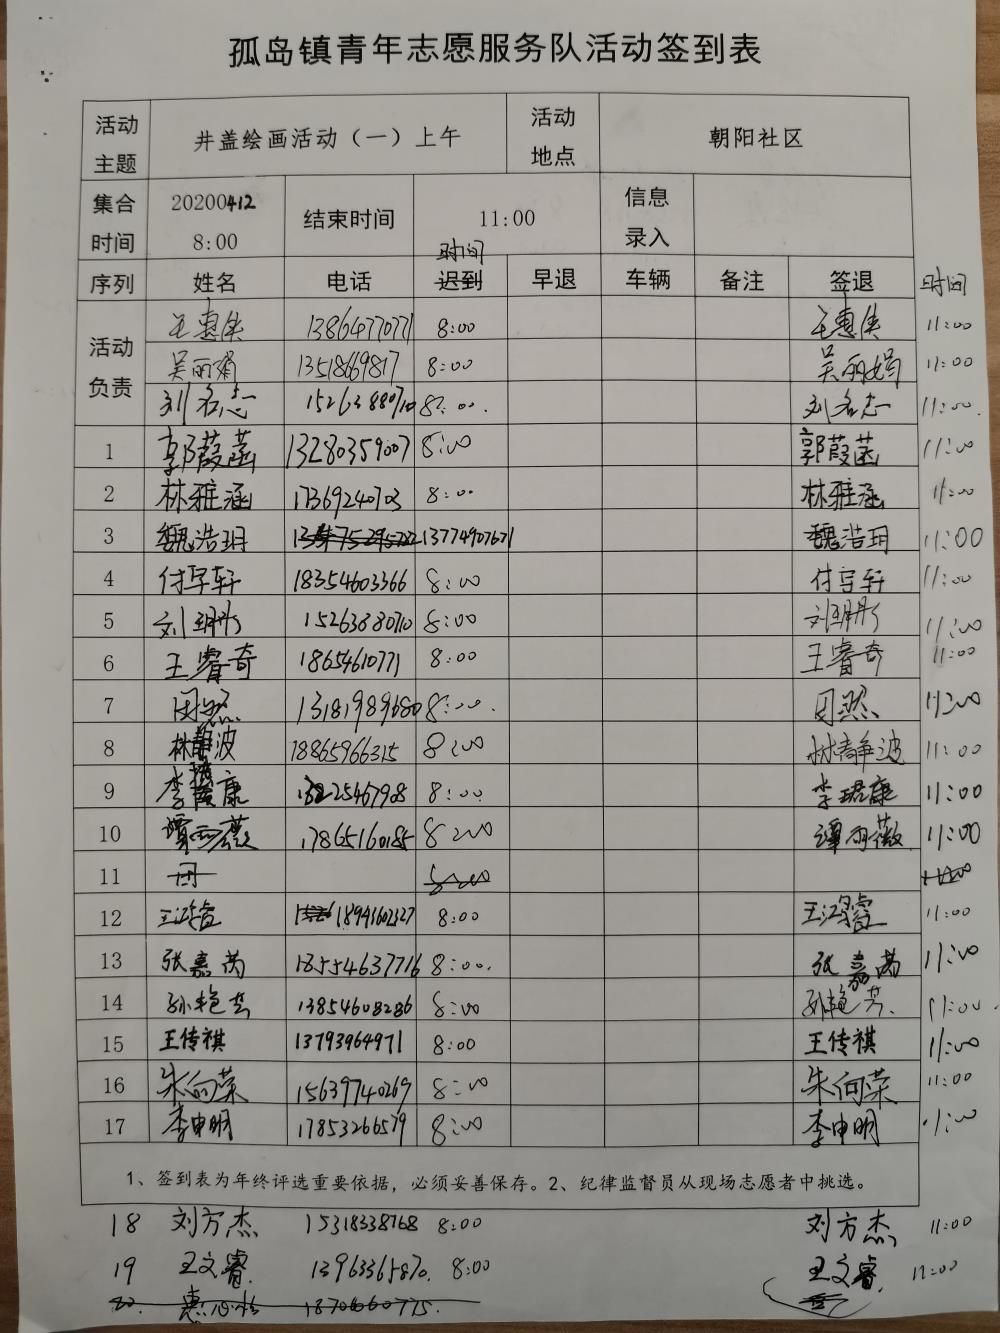 孤岛镇青年志愿服务队活动签到表
活动主题 井盖绘画活动（一）上午 活动地点 朝阳社区
集合时间 20200412 8:00 结束时间 11:00 信息录入
时间
序列 姓名 电话 迟到 早退 车辆 备注 签退 时间
活动负责 王惠侠 13864770771 8:00 王惠侠 11:00
吴丽娟 13518669817 8:00 吴丽娟 11:00
刘名志 15263880710 8:00. 刘名志 11:00.
1 郭葭菡 13280359007 8:00 郭葭菡 11:00
2 林雅涵 17369240703 8:00 林雅涵 11:00
3 魏浩玥 13774907671 魏浩玥 11:00
4 付字轩 18354603366 8:00 付字轩 11:00
5 刘玥彤 15263880710 8:00 刘玥彤 11:00
6 王睿奇 18654610771 8:00 王睿奇 11:00
7 13181989680 8:00. 11:00
8 林静波 18865966315 8:00 林静波 11:00
9 李琚康 8:00. 李琚康 11:00
10 谭雨薇 17865160185 8:00 谭雨薇 11:00
11 8:00 11:00
12 18941602327 8:00 11:00
13 张嘉芮 18554637716 8:00. 张嘉芮 11:00
14 孙艳芳 13854608286 8:00 孙艳芳. 11:00
15 王传祺 13793964971 8:00 王传祺 11:00
16 朱向荣 15639740269 8:00 朱向荣 11:00
17 李申明 17853266579 8:00 李申明 11:00
1、签到表为年终评选重要依据，必须妥善保存。2、纪律监督员从现场志愿者中挑选。
18 刘方杰 15318338768 8:00 刘方杰 11:00
19 王文睿. 13963365870. 8:00 王文睿. 11:00
20. 18706660775.